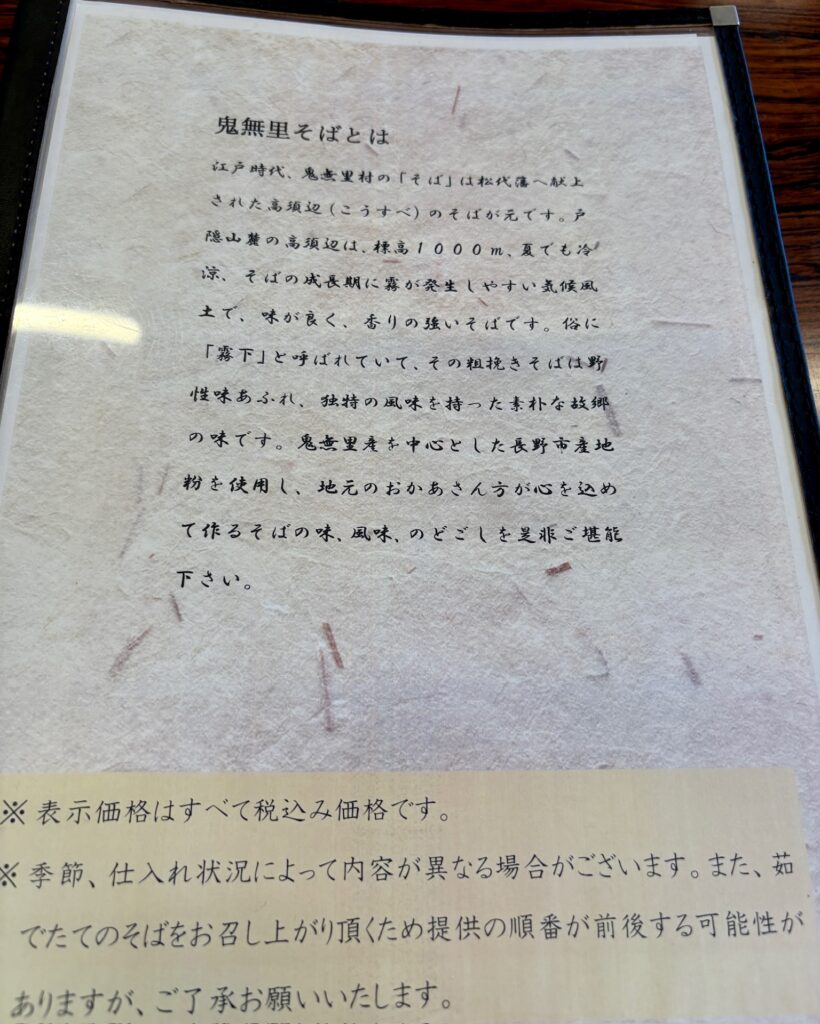 鬼無里そばとは
江戸時代、鬼無里村の「そば」は松代藩へ献上
された高須辺（こうすべ）のそばが元です。戸
隠山麓の高須辺は、標高１０００ｍ、夏でも冷
涼、そばの成長期に霧が発生しやすい気候風
土で、味が良く、香りの強いそばです。俗に
「霧下」と呼ばれていて、その粗挽きそばは野
性味あふれ、独特の風味を持った素朴な故郷
の味です。鬼無里産を中心とした長野市産地
粉を使用し、地元のおかあさん方が心を込め
て作るそばの味、風味、のどごしを是非ご堪能
下さい。
※表示価格はすべて税込み価格です。
※季節、仕入れ状況によって内容が異なる場合がございます。また、茹
でたてのそばをお召し上がり頂くため提供の順番が前後する可能性が
ありますが、ご了承お願いいたします。